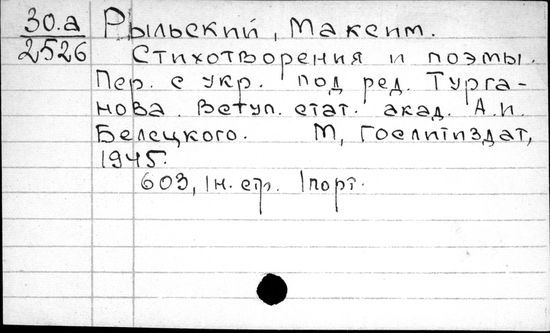 30.а
2526
Рыльский, Максим.
Стихотворения и поэмы.
Пер. с укр. под ред. Турга-
нова. Вступ. стат. акад. А.И.
Белецкого. М, Гослитиздат,
1945.
603, 1н. стр. 1 порт.